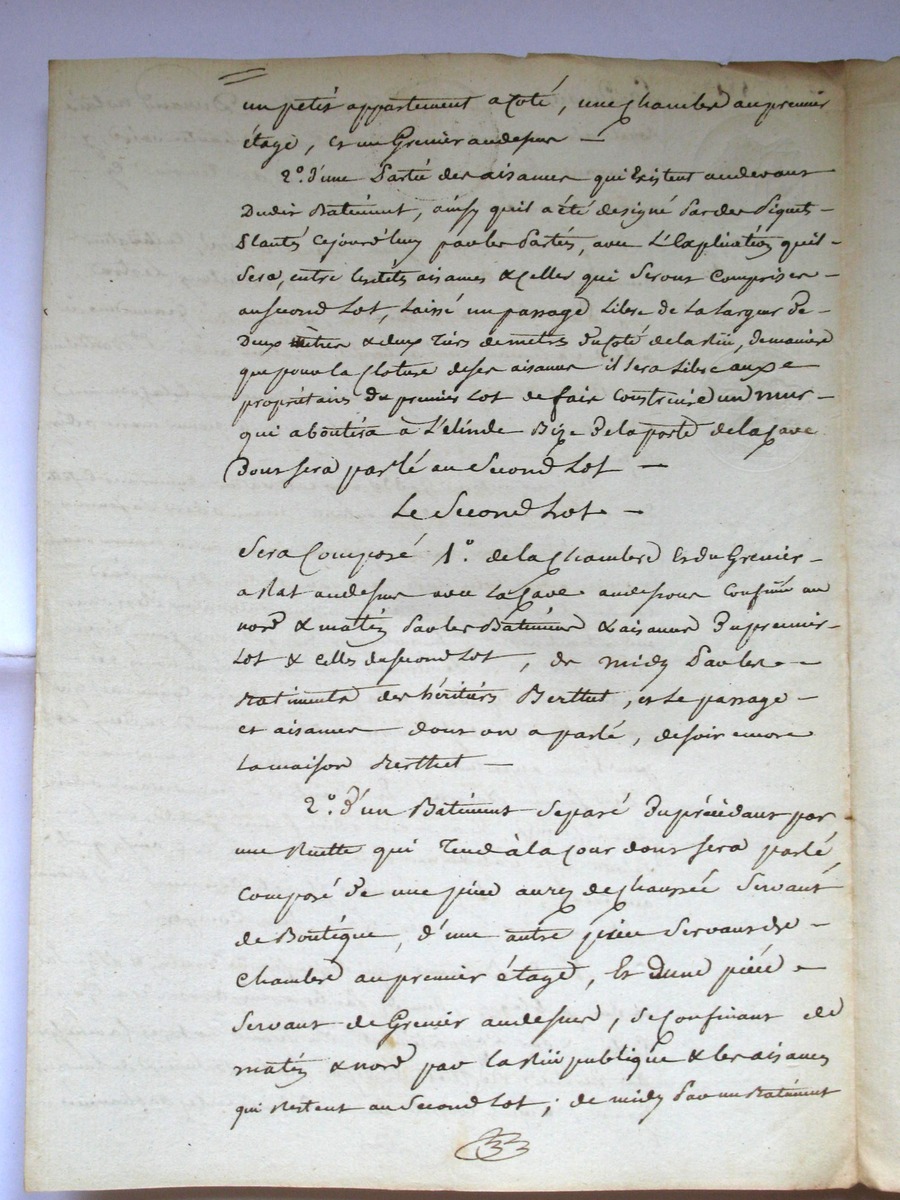 un petit appartement a Coté, une chambre au premier
étage, et un Grenier audessus —
2.° d'une Partie des aisances qui Existent audevant
Dudit Batiment, ainsy quil a été designé Par des Piquets
Plantés cejourd'huy par les Parties, avec L'Explication quil
Sera, entre lesdites aisances & Celles qui Seront Comprises
au Second Lot, Laissé un passage Libre de La Largeur de
Deux mètres & deux Tiers de metre du Coté de la Rüe, de maniere
que pour la Cloture de ses aisances il Sera Libre aux
propriétaires du premier Lot de faire Construire un mur
qui aboutira à L'elinde Bize de la porte de la Cave
Dont Sera parlé au Second Lot —
Le Second Lot —
Sera Composé 1.° de la Chambre Et du Grenier
a Rat audessus avec La Cave audessous Confiné au
nord & matin Par les Batiments & aisances Du premier
Lot & Celles du second Lot, de midy Par les
Batiments des héritiers Berthet, et Le passage
et aisances dont on a parlé, de soir encore
La maison Berthet —
2.° D'un Batiment Separé Du précédant par
une Ruette qui Tend à la Cour dont Sera parlé
Composé de une piece au rez de chaussée Servant
de Boutique, d'une autre piece Servant de
Chambre au premier étage, Et Dune piece
Servant de Grenier audessus, Se Confinant de
matin & nord par la Rüe publique & les aisances
qui Restent au Second Lot; de midy Par un Batiment